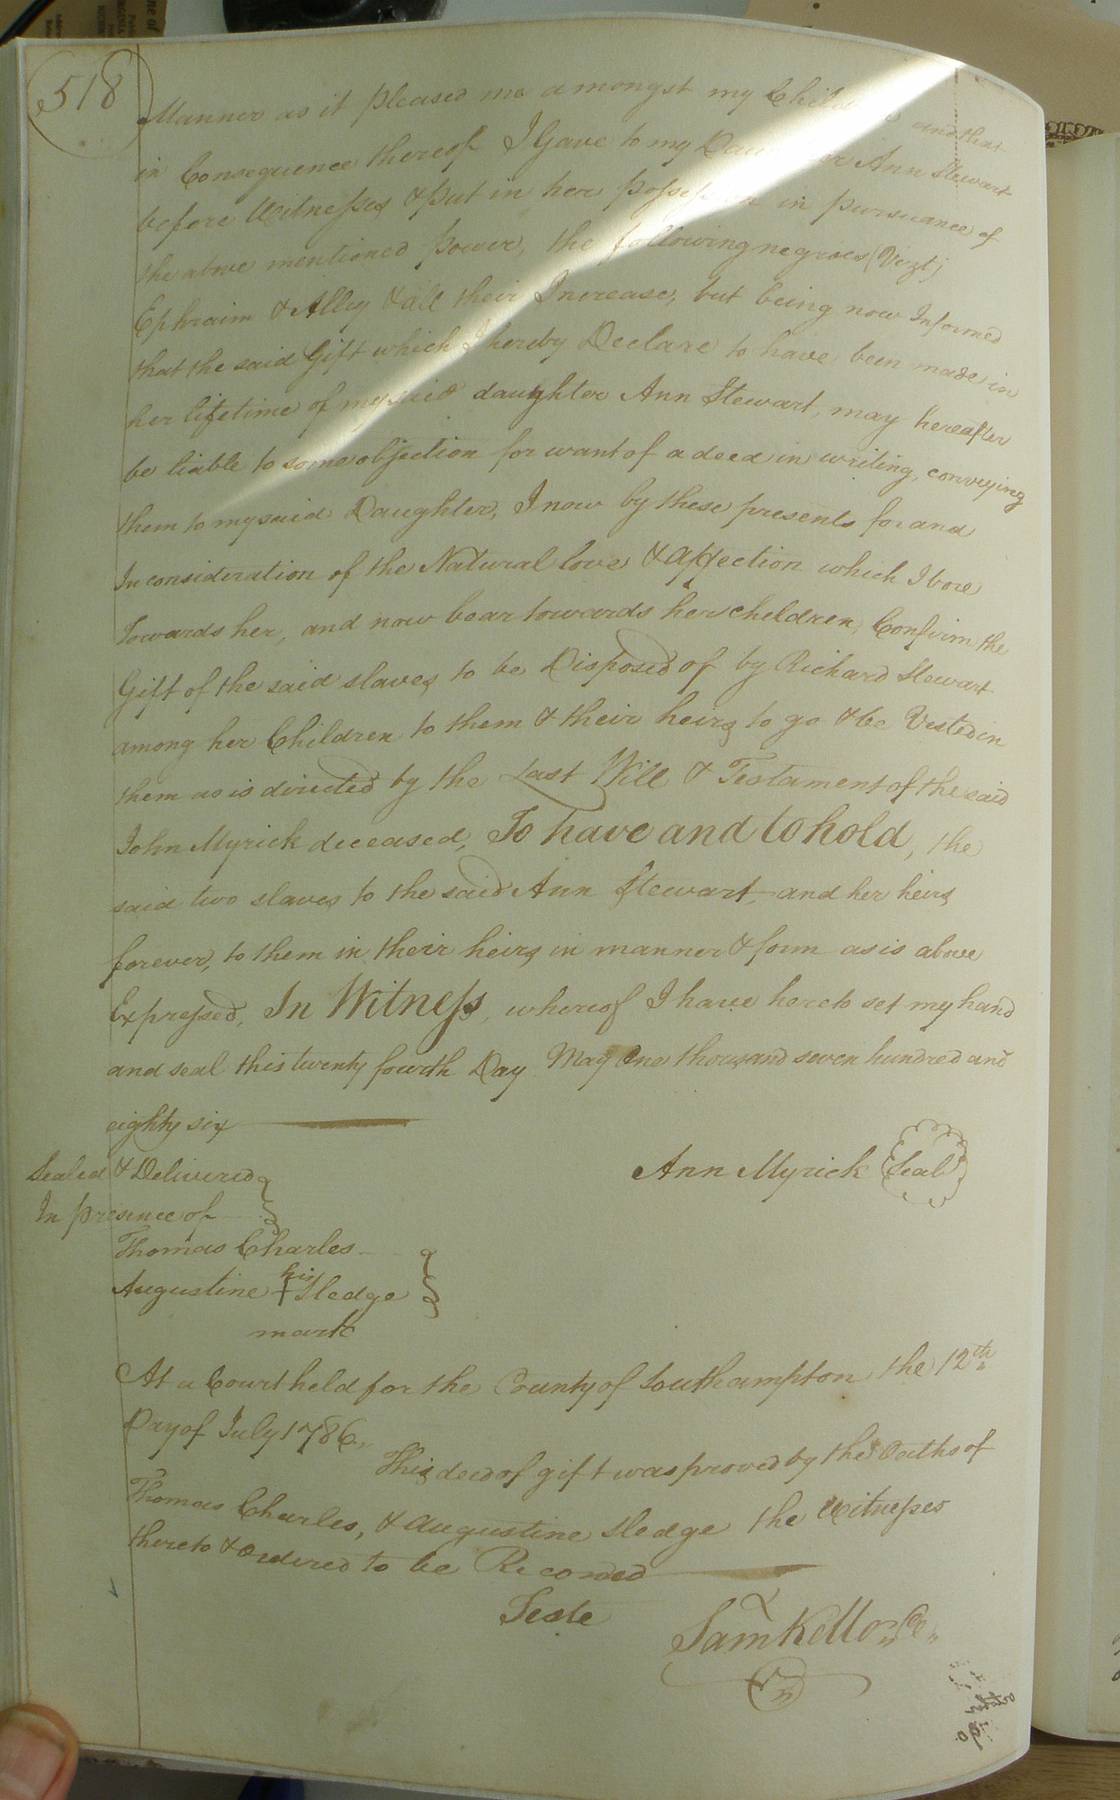 518
Manner as it pleased me amongst my Child and that
in Consequence thereof I Gave to my Dau er Ann Stewart
before Witnesses & put in her possession in pursuance of
the above mentioned power, the following negroes (Vizt)
Ephraim & Alley & all their Increase, but being now Informed
that the said Gift which I hereby Declare to have been made in
her lifetime of my said daughter Ann Stewart, may hereafter
be liable to some objection for want of a deed in writing, conveying
them to my said Daughter, I now by these presents for and
In consideration of the Natural love & affection which I bore
Towards her, and now bear towards her children, Confirm the
Gift of the said slaves to be Disposed of by Richard Stewart
among her Children to them & their heirs to go & be Vested in
them as is directed by the Last Will & Testament of the said
John Myrick deceased, To have and to hold, the
said two slaves to the said Ann Stewart, and her heirs
forever, to them in their heirs in manner & form as is above
Expressed, In Witness, whereof I have hereto set my hand
and seal this twenty fourth Day May One thousand seven hundred and
eighty six
Sealed & Delivered
In presence of
Ann Myrick Seal
Thomas Charles
Augustine his Sledge
mark
At a Court held for the County of Southampton the 12th
Day of July 1786,
This deed of gift was proved by the Oaths of
Thomas Charles, & Augustine Sledge the Witnesses
thereto & ordered to be Recorded
Teste
Sam Kello